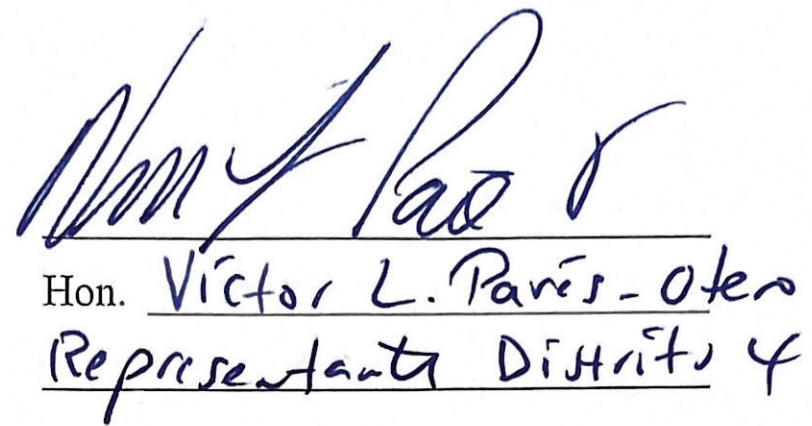 Hon. Víctor L. Parés-Otero
Representante Distrito 4